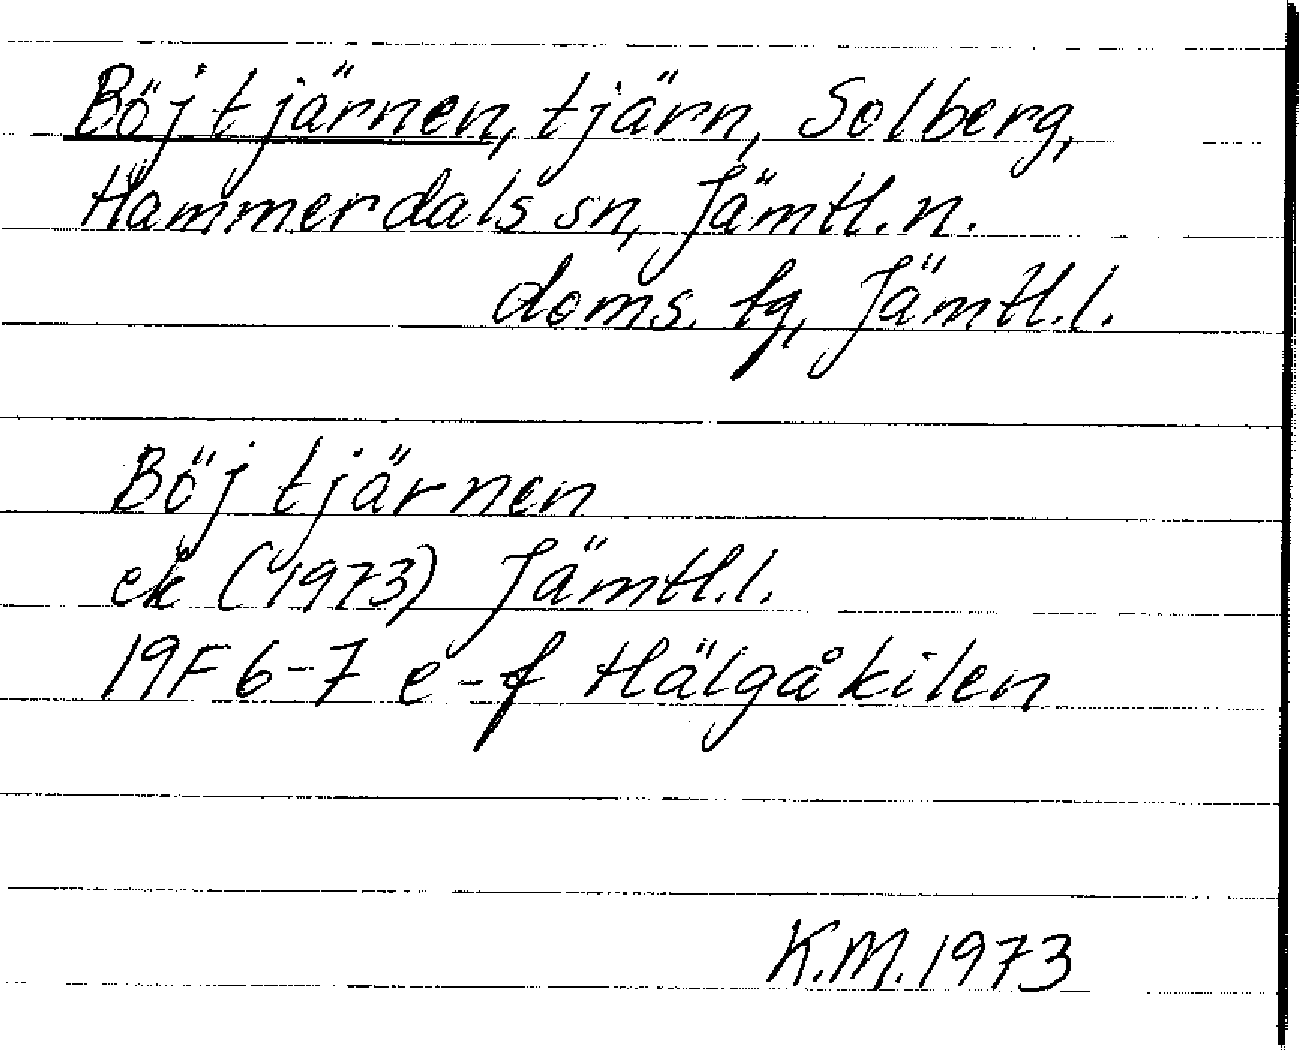 Böjtjärnen, tjärn, Solberg,
Hammerdals sn, Jämtl. n.
doms. tg, Jämtl. l.
Böjtjärnen
ek (1973) Jämtl. l.
19F 6-7 e-f Hälgåkilen
K.M. 1973